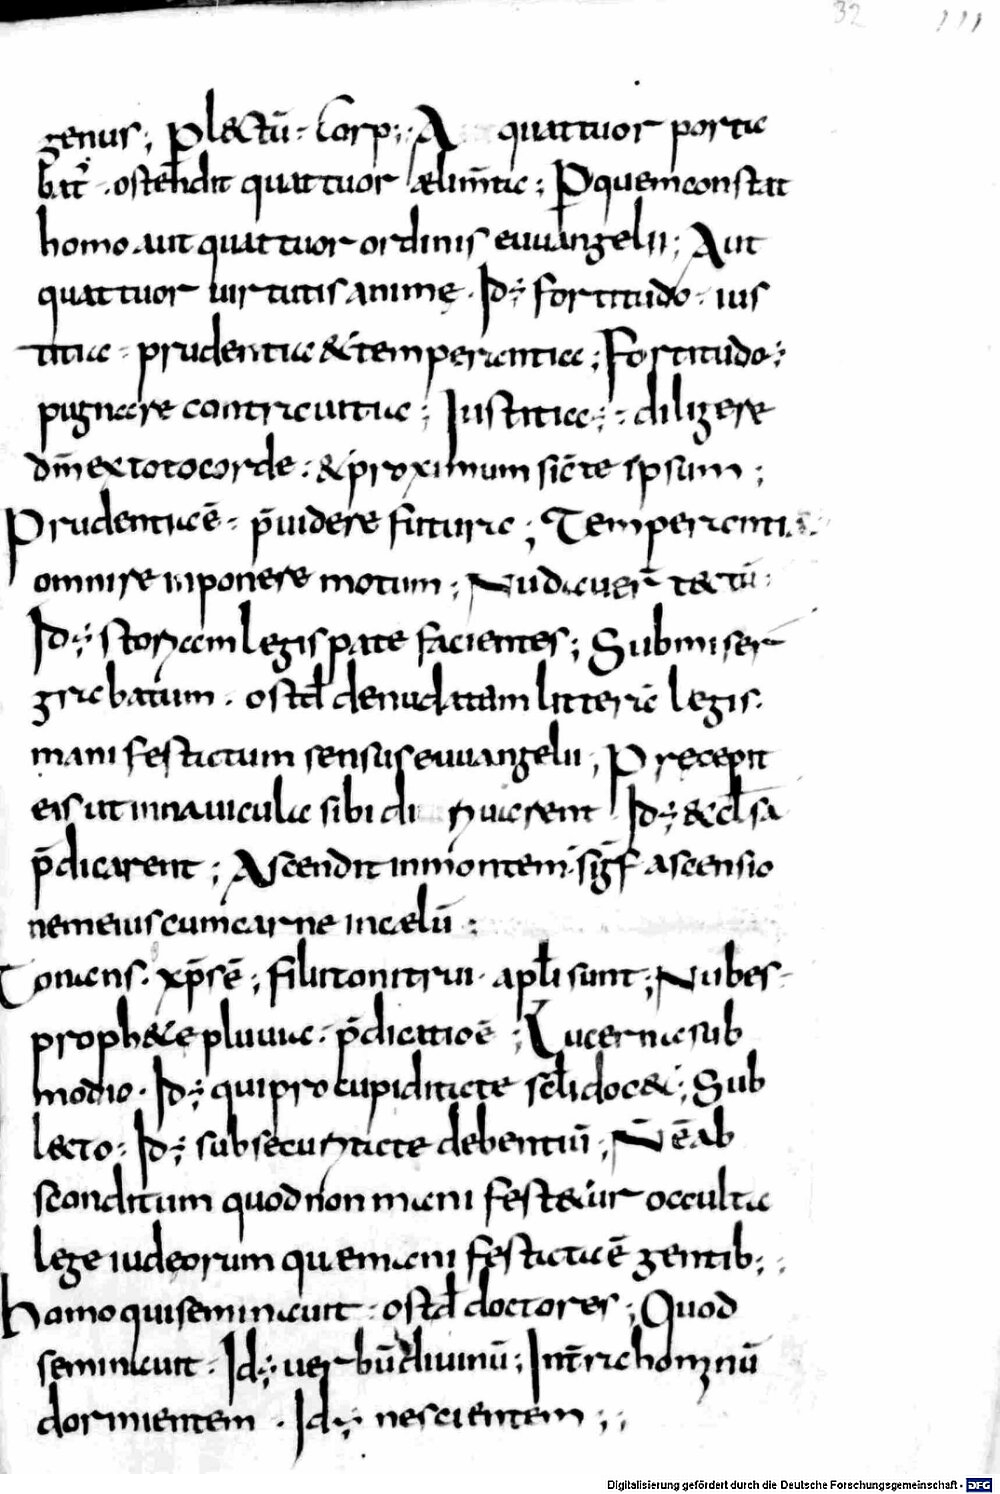 32 111
genus; P lectū · Corp; · A quattuor porta
bat͛ · ostendit quattuor ælim̄ta; P quem constat
homo aut quattuor ordinis euuangelii; Aut
quattuor uirtutis anime · Id; fortitudo · ius
titia · prudentia & temperantia; Fortitudo;
pugnare contra uitia; Iustitia; · diligere
dm̄ ex toto corde · & proximum sic̄ te ipsum;
Prudentia ē · p̄uidere futura; Temperantia
omni re inponere motum; Nuda uer̄ tectū ·
Id; storiam legis pate facientes; Submiser̄
grabatum · ostd̄ denudatam litterā legis ·
manifestatum sensus euuangelii; Precepit
eis ut in nauicula sibi di seruierent Id; & cl̄sa
p̄dicarent; Ascendit in montem · sigf̄ ascensio
nem eius cum carne in cælū;
Tonans · xp̄s ē; filii tonitrui · apl̄i sunt; Nubes ·
proph&æ pluuia · p̄dicatio ē; Lucerna sub
modio · Id; qui pro cupiditate scl̄i doc&; Sub
lecto · Id; sub securitate debentiū; N̄ ē ab
sconditum quod non manifest&ur occulta
lege iudeorum que manifestata ē gentib;;
Homo qui seminauit · ostd̄ doctores; Quod
seminauit · Id; uerbū diuinū; Int̄ra hominū
dormientem · Id; nescientem;;
Digitalisierung gefördert durch die Deutsche Forschungsgemeinschaft - DFG